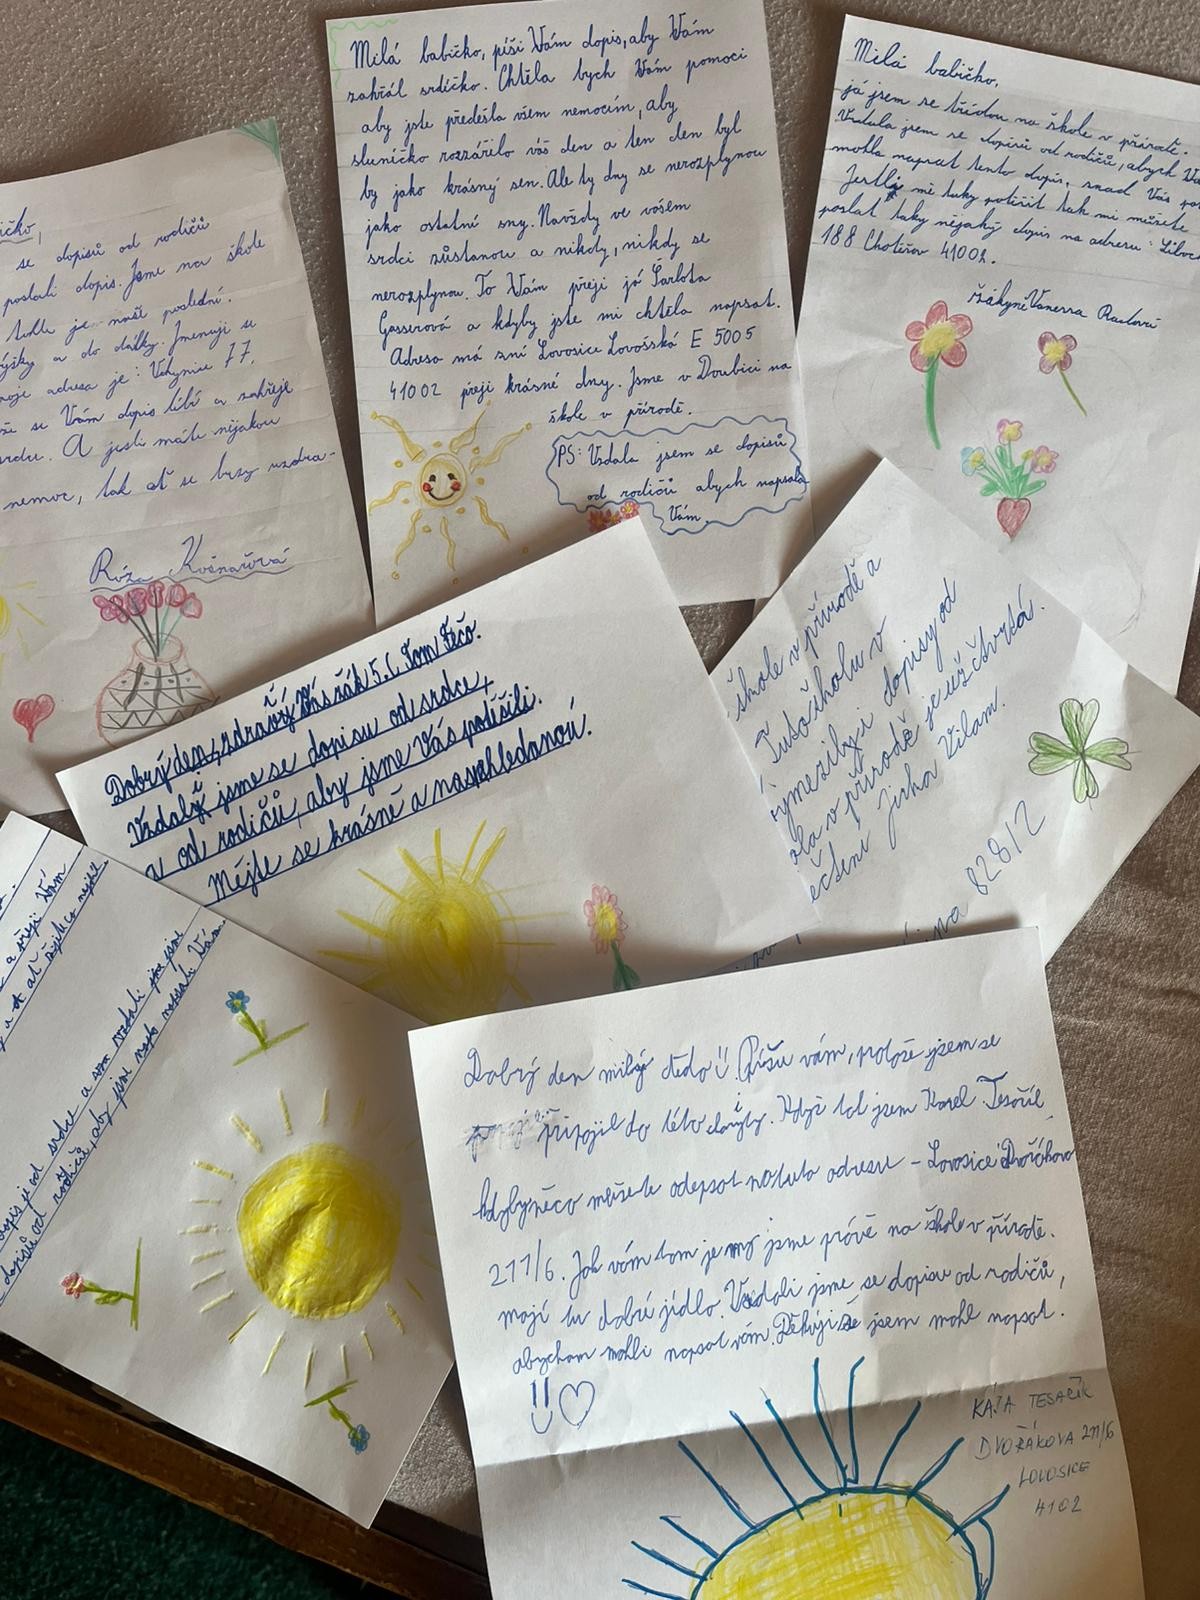 Milá babičko, píši Vám dopis, aby Vám
zahřál srdíčko. Chtěla bych Vám pomoci
aby jste předešla všem nemocím, aby
sluníčko rozzářilo váš den a ten den byl
by jako krásný sen. Ale ty dny se nerozplynou
jako ostatní sny. Navždy ve vašem
srdci zůstanou a nikdy, nikdy se
nerozplynou. To Vám přeji já Šarlota
Gasserová a kdyby jste mi chtěla napsat.
Adresa má zní Lovosice Lovošská E 5005
41002 přeji krásné dny. Jsme v Doubici na
škole v přírodě.
PS: Vzdala jsem se dopisů
od rodičů abych napsala
Vám.
Milá babičko,
já jsem se třídou na škole v přírodě.
Vzdala jsem se dopisů od rodičů, abych
mohla napsat tento dopis, snad Vás
Jestli mě taky potěšit tak mi můžete
poslat taky nějaký dopis na adresu:
188 Chotěšov 41002.
žákyně Vanessa
se dopisů od rodičů
poslali dopis. Jsme na škole
tohle je naše poslední.
a do dálky. Jmenuji se
adresa je: Vchynice 77.
se Vám dopis líbí a zahřeje
A jestli máte nějakou
nemoc, tak ať se brzy uzdra-
Róza Košnařová
Dobrý den, zdraví Vás žák 5.C Tom Fečo.
Vzdali jsme se dopisu od srdce,
a od rodičů, aby jsme Vás potěšili.
Mějte se krásně a nashledanou.
škole v přírodě a
dopisy od
v přírodě je už čtvrtá.
Jirka Vilam.
828/2
a přeji Vám
dopis je od srdce a sme vzdali jsme
dopisů od rodičů, aby jsme napsali Vám.
Dobrý den milý dědo! Píšu vám, protože jsem se
připojil do této charity. Když tak jsem Karel Tesařík
kdyby něco můžete odepsat na tuto adresu - Lovosice Dvořákova
211/6. Jak vám tam je my jsme právě na škole v přírodě.
mají tu dobré jídlo. Vzdali jsme se dopisu od rodičů,
abychom mohli napsat vám. Děkuji že jsem mohl napsat.
KÁJA TESAŘÍK
DVOŘÁKOVA 211/6
LOVOSICE
4102